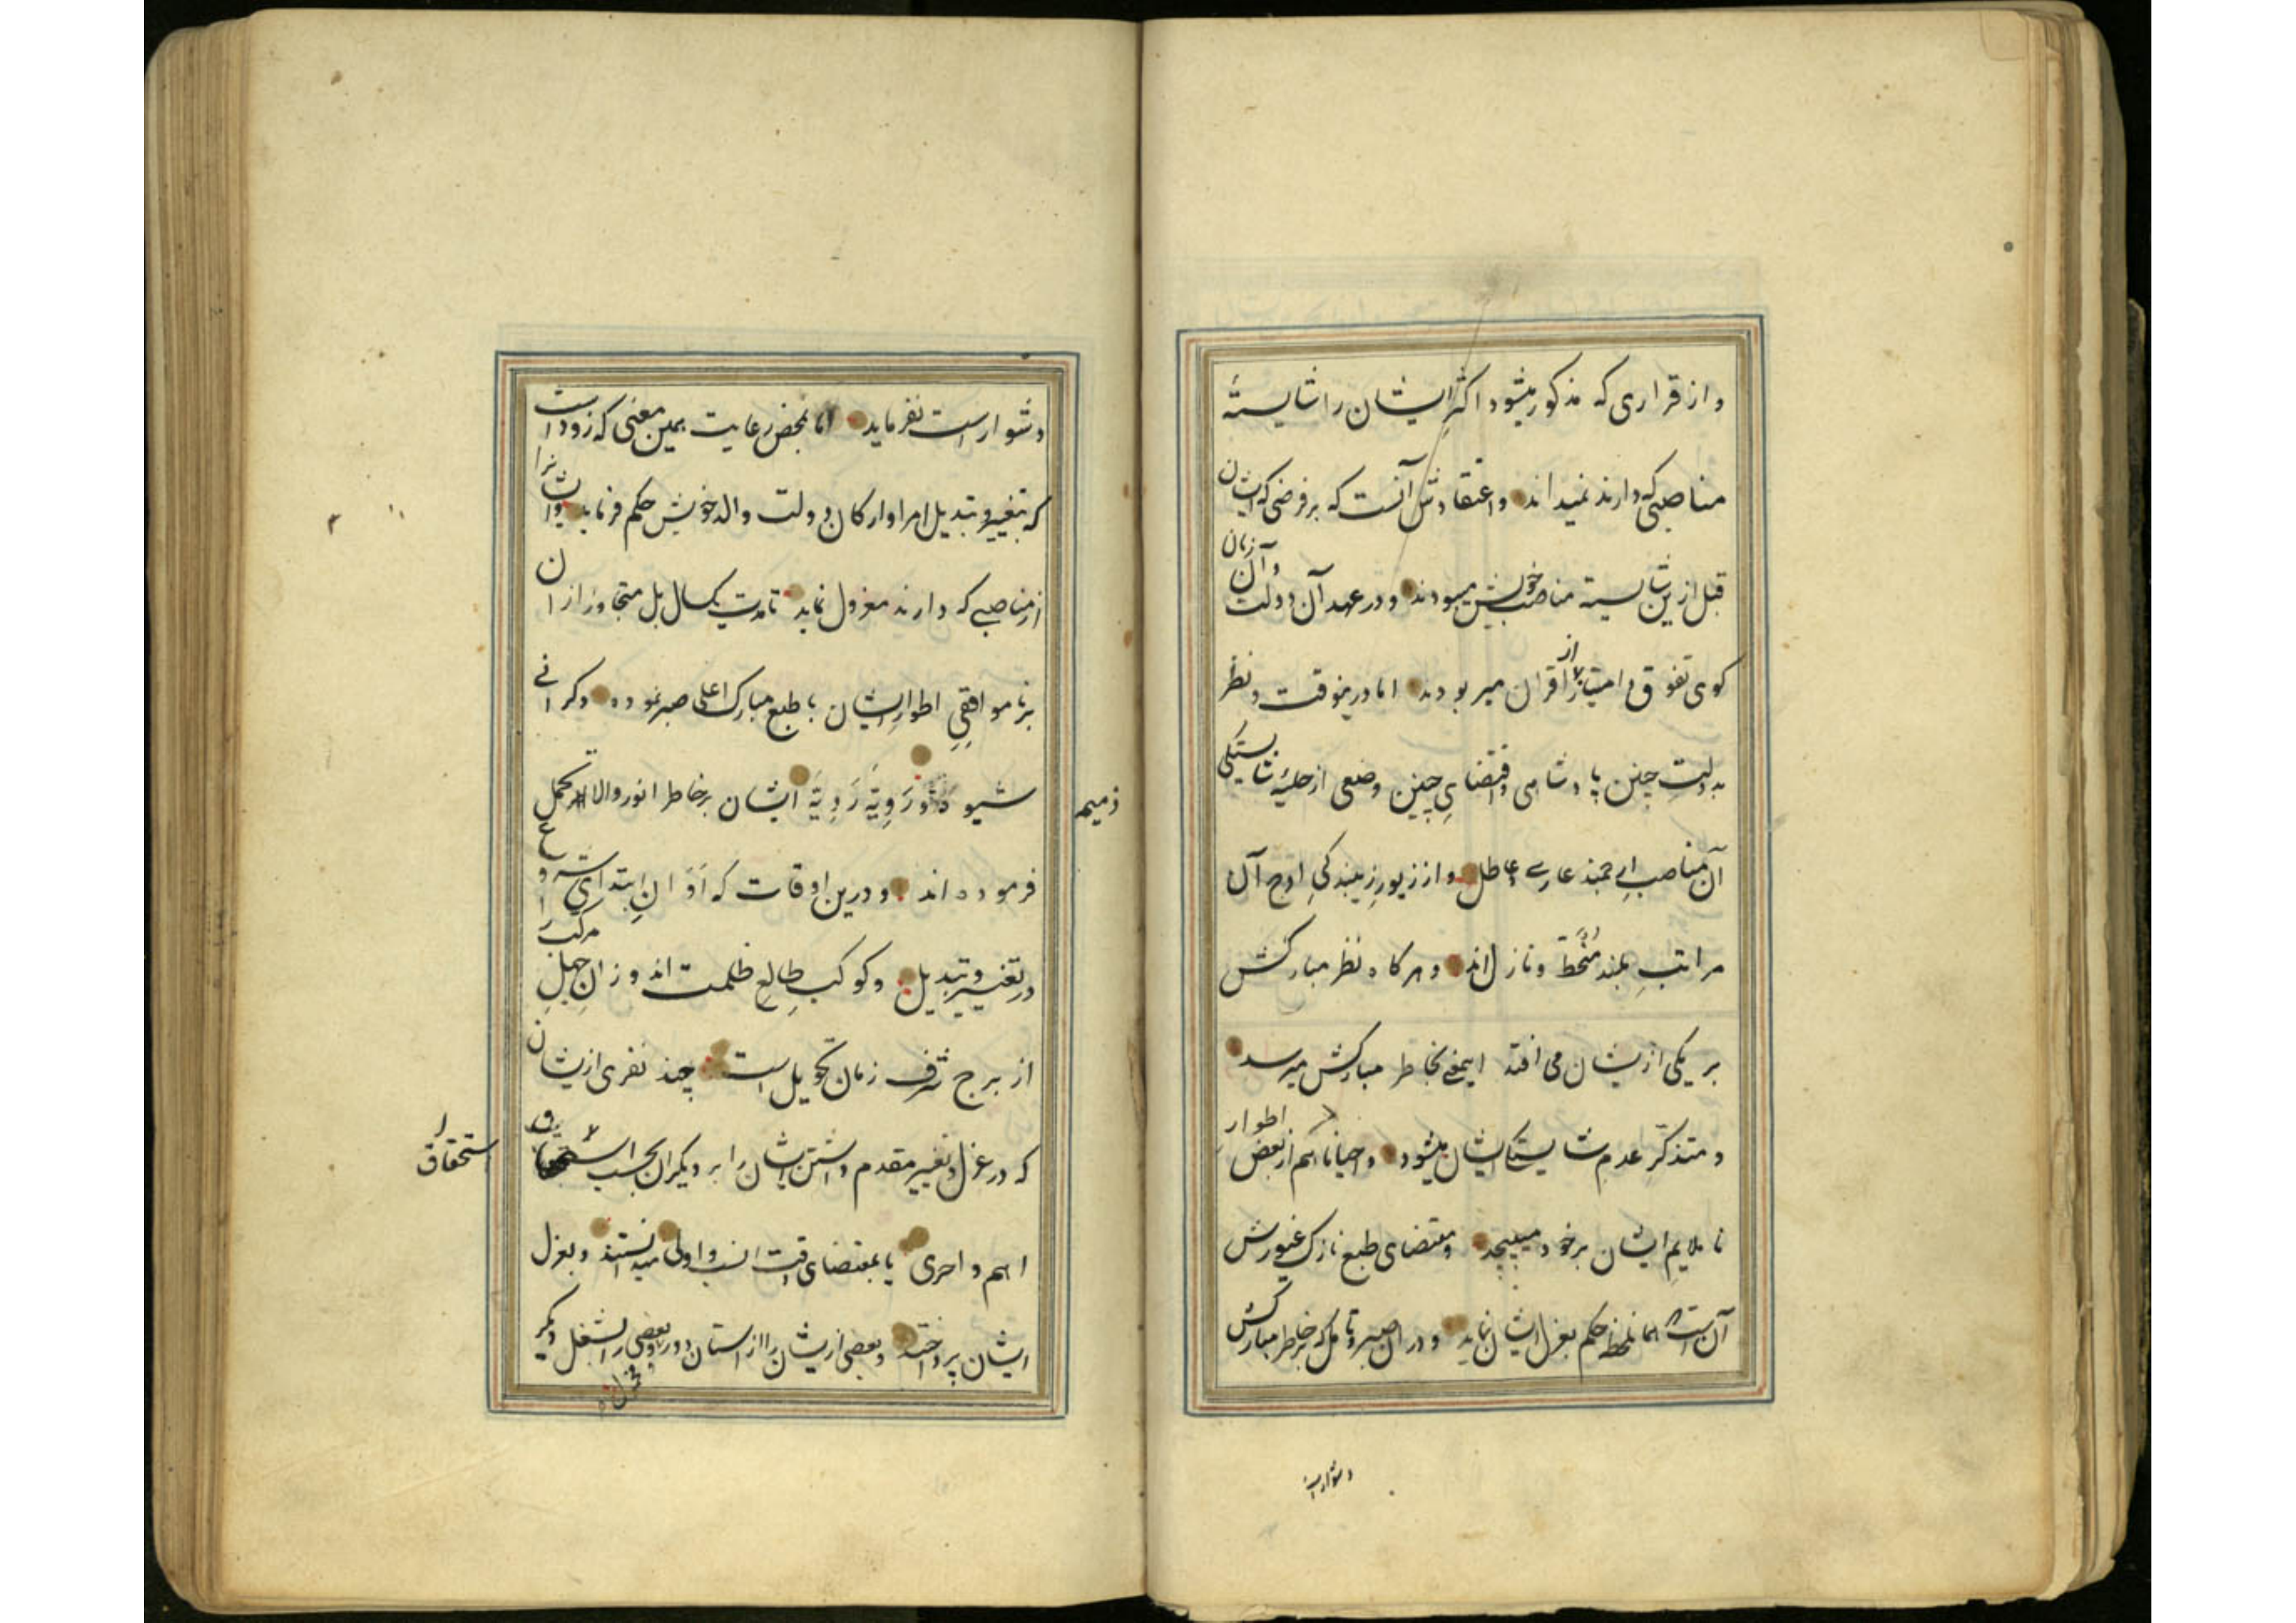 و از قراری که مذکور میشود اکثر ایشان را شایستهٔ
مناصبی که دارند نمیداند و اعتقادش آنست که بر فرضی که ایشان
قبل ازین شایسته مناصب خویش میبودند و در عهد آن دولت و آن زمان
کوی تفوق و امتیاز از اقران میربودند اما درینوقت و نظر
بدولتِ چنین پادشاهی و اقتضایِ چنین وضعی از حلیهٔ شایستکی
آن مناصبِ ارجمند عاری و عاطل و از زیورِ زیبندکیِ اوج آن
مراتبِ بلند منحَطّ و نازل اند و هرکاه نظر مبارکش
بر یکی از یشان می افتد اینمعنی بخاطر مبارکش میرسد
و متذکّرِ عدم شایستکی ایشان میشود و احیانا هم از بعض اطوار
نا ملایمِ ایشان بر خود میپیچد و مقتضای طبع نازک غیورش
آن است که همانلحظه حکم بعزل ایشان نماید و در آن صبر و تامل که بر خاطر مبارکش
دشوار است
دشوار است نفرماید اما بمحض رعایت همین معنی که زود است
که بتغییر و تبدیل امرا و ارکان دولت والد خویش حکم فرماید و ایشانرا
از مناصبی که دارند معزول نماید تا مدت یکسال بل متجاوز از ان
بر نا موافقیِ اطوارِ ایشان با طبع مبارک اعلی صبر نموده و کرانی
شیوه ذمیمه و رَوِیّه رَدِیّهَ ایشان بر خاطر انور والا تحمل
فرموده اند و درین اوقات که اَوَ انِ ابتدای شروع
در تغییر و تبدیل و کوکب طالعِ ظلمت اندوزِ ان جهلِ مرکب را
از برج شرف زمان تحویل است چند نفری ازیشان
که در عزل و تغییر مقدم داشتن ایشان را بر دیکران بحسب استحقاق
اهم و احری یا بمقتضای وقت انسب و اولی میدانستند و بعزل
ایشان پرداخته و بعضی ازیشان را از استان دور و بعضی را بشغل دیکر